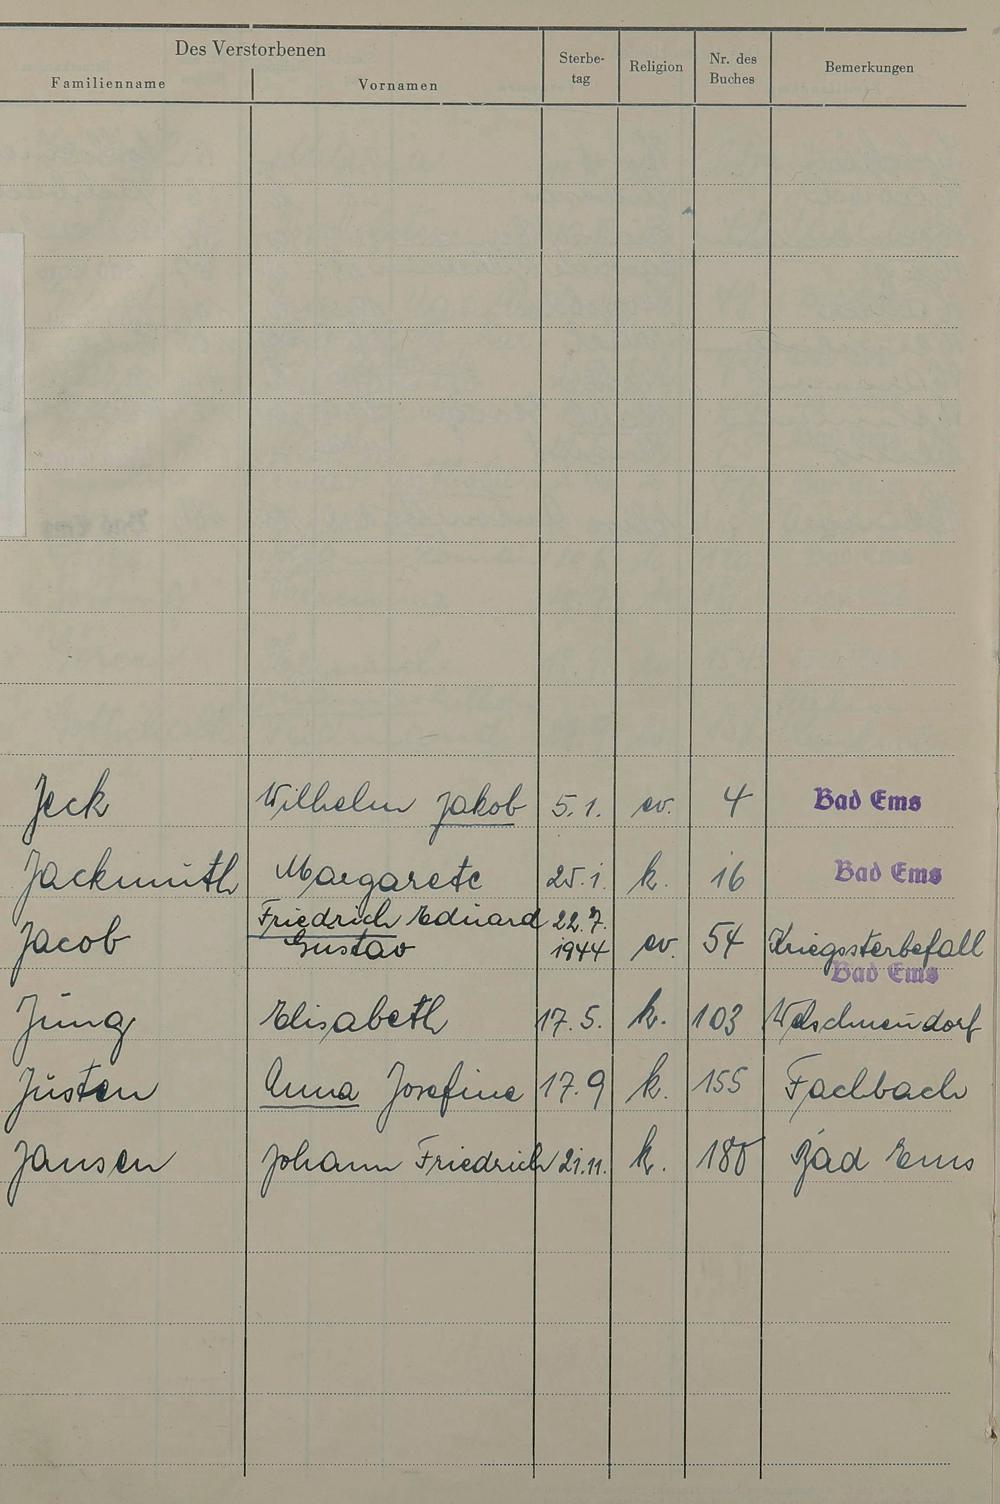 Des Verstorbenen
Familienname Vornamen Sterbe-tag Religion Nr. des Buches Bemerkungen
Jeck Wilhelm Jakob 5.1. ev. 4 Bad Ems
Jackmuth Margarete 25.1. k. 16 Bad Ems
Jacob Friedrich Eduard Gustav 22.7. 1944 ev. 54 Kriegssterbefall
Bad Ems
Jung Elisabeth 17.5. k. 103 Welschneudorf
Justen Anna Josefine 17.9 k. 155 Fachbach
Jansen Johann Friedrich 21.11. k. 180 Bad Ems